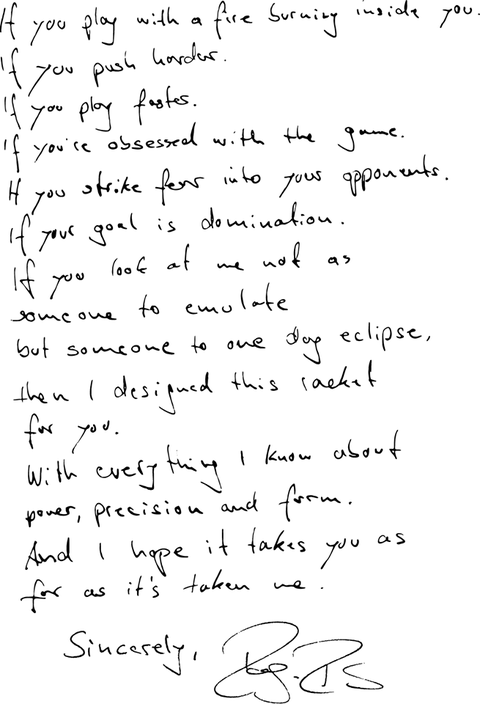 If you play with a fire burning inside you.
If you push harder.
If you play faster.
If you're obsessed with the game.
If you strike fear into your opponents.
If your goal is domination.
If you look at me not as
someone to emulate
but someone to one day eclipse,
then I designed this racket
for you.
With everything I know about
power, precision and form.
And I hope it takes you as
far as it's taken me.
Sincerely,